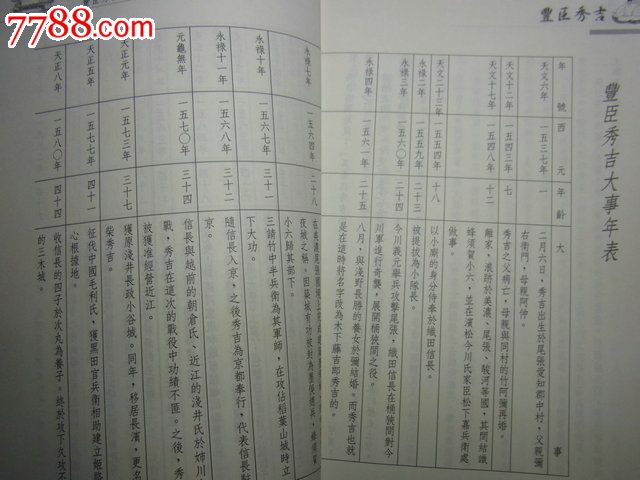 7788.com
豐臣秀吉
豐臣秀吉大事年表
年號 西元 年齡 大事
天文六年 一五三七年 一 二月六日，秀吉出生於尾張愛知郡中村，父親彌
右衛門，母親阿仲。
天文十二年 一五四三年 七 秀吉之父病亡，母親與同村的竹阿彌再婚。
天文十七年 一五四八年 十二 離家，浪跡於美濃、尾張、駿河等國，其間結識
蜂須賀小六，並在濱松今川氏家臣松下嘉兵衛處
做事。
天文二十三年 一五五四年 十八 以小廝的身分侍奉於織田信長。
永祿二年 一五五九年 二十三 被提拔為小隊長。
永祿三年 一五六〇年 二十四 今川義元舉兵攻擊尾張，織田信長在桶狹間對今
川軍進行奇襲，展開桶狹間之役。
永祿四年 一五六一年 二十五 八月，與淺野長勝的養女於寧結婚。而秀吉也就
是在這時將名字改為木下藤吉郎秀吉的。
永祿七年 一五六四年 二十八
小六歸其部下。
永祿十年 一五六七年 三十一 三請竹中半兵衛為其軍師，在攻佔稻葉山城時立
下大功。
永祿十一年 一五六八年 三十二 隨信長入京，之後秀吉為京都奉行，代表信長對
京。
元龜無年 一五七〇年 三十四 信長與越前的朝倉氏、近江的淺井氏於姊川
戰，秀吉在這次的戰役中功績不匪。之後，秀
被獲准經營近江。
天正元年 一五七三年 三十七 獲原淺井長政小谷城。同年，移居長濱，更名
柴秀吉。
天正五年 一五七七年 四十一 征伐中國毛利氏，獲黑田官兵衛相助建立姬路
心根據地。
天正八年 一五八〇年 四十四 收信長的四子於次丸為養子。終於攻下久攻不
的三木城。